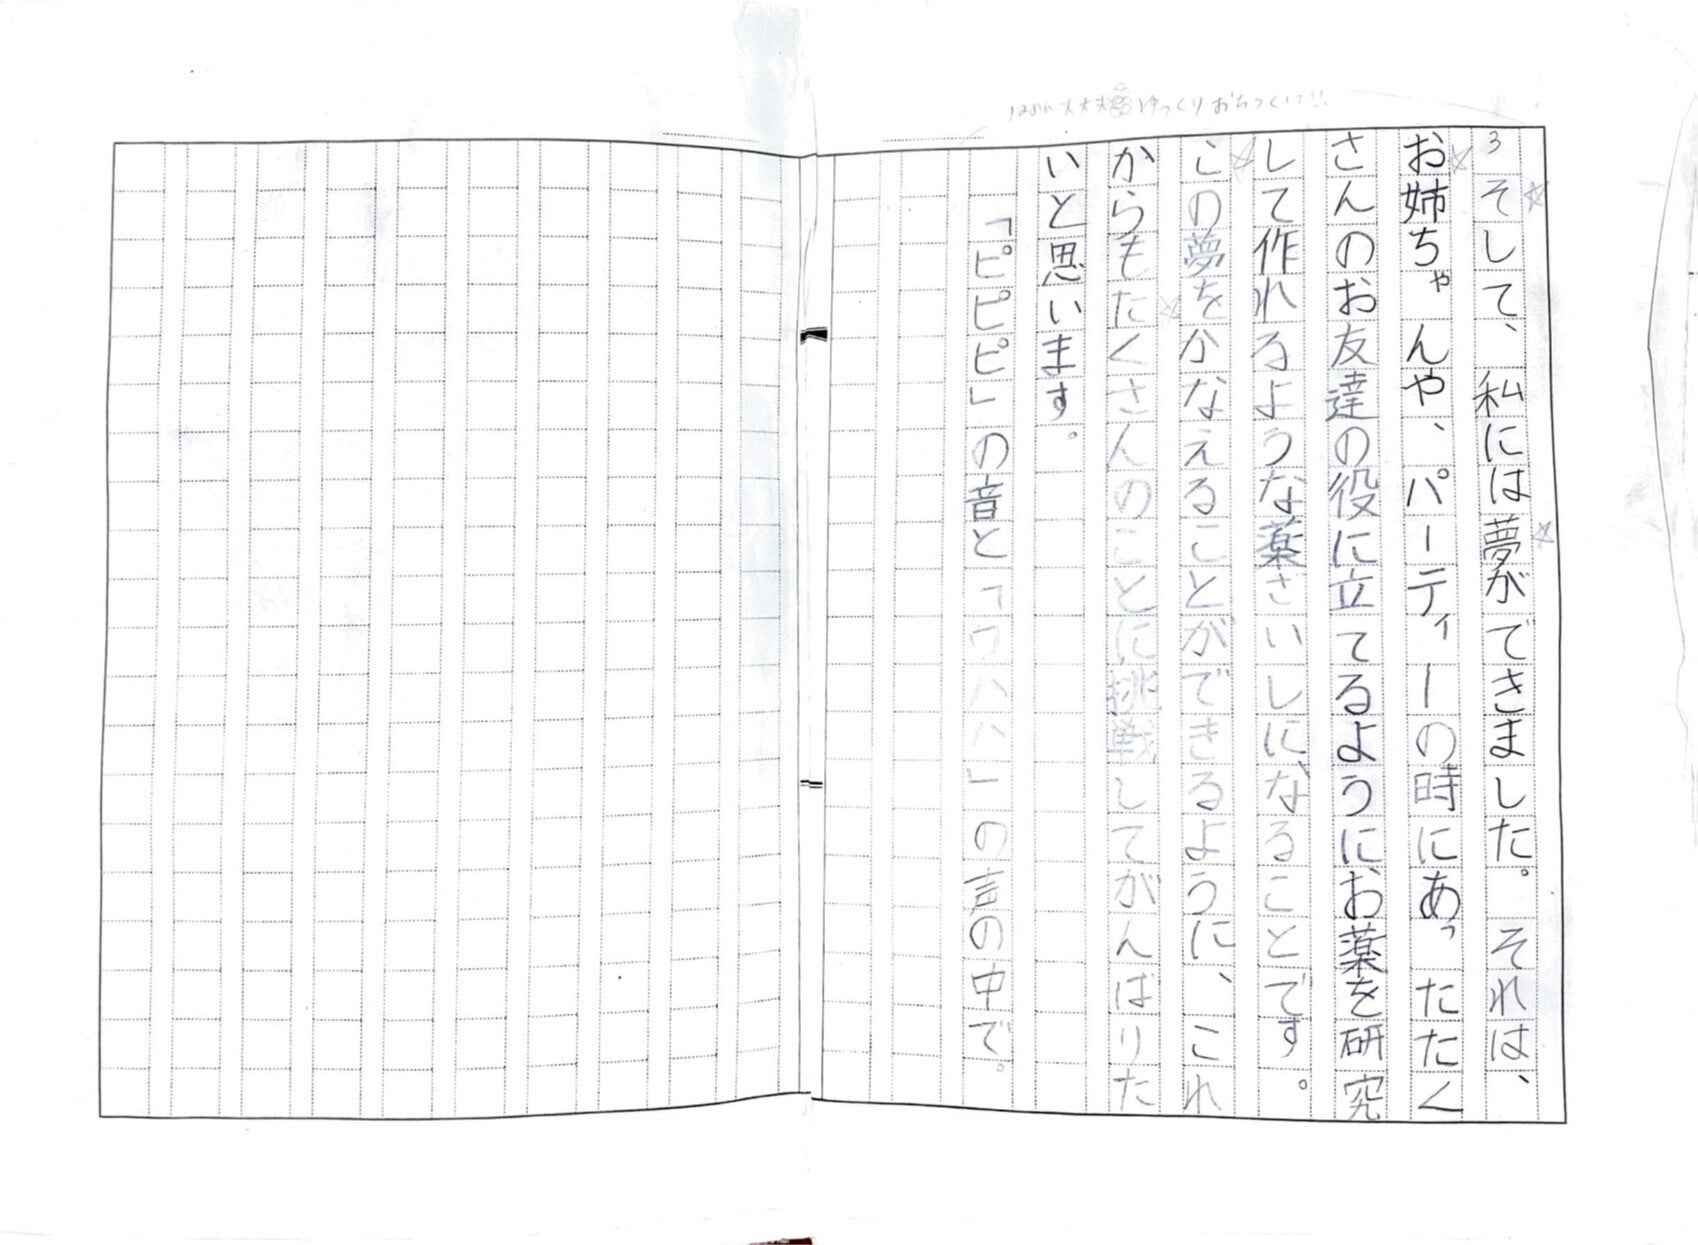 大丈夫ゆっくりおちついて!!
3
そして、私には夢ができました。それは、
お姉ちゃんや、パーティーの時にあったたく
さんのお友達の役に立てるようにお薬を研究
して作れるような薬ざいしになることです。
この夢をかなえることができるように、これ
からもたくさんのことに挑戦してがんばりた
いと思います。
「ピピピ」の音と「ウハハ」の言の中で。